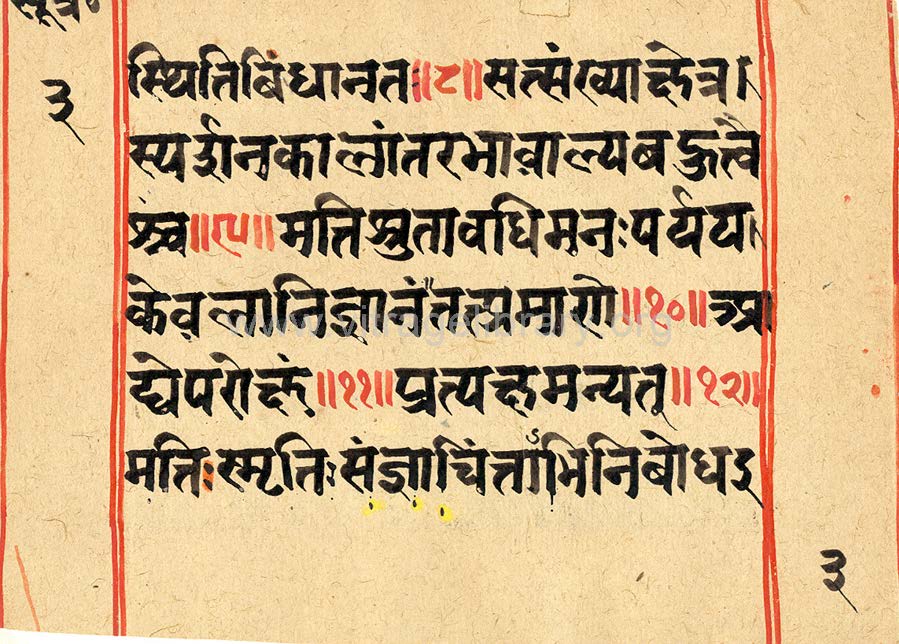 सूत्र॰
३
स्थितिबिंधानतः॥८॥सत्संख्याक्षेत्र।
स्पर्शनकालांतरभावाल्पबहुत्वै
श्च॥९॥मतिश्रुतावधिमनःपर्यय।
केवलानिज्ञानंतत्प्रमाणे॥१०॥आ
द्येपरोक्षं॥११॥प्रत्यक्षमन्यत्॥१२॥
मतिःस्मृतिःसंज्ञाचिंताभिनिबोधइ
३
www.vitragelibrary.org